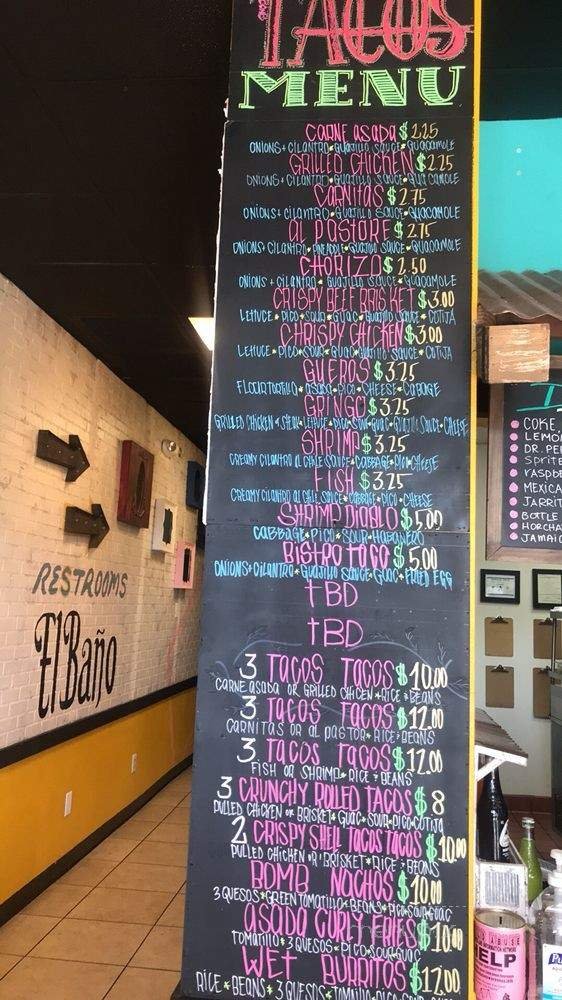 TACOS
MENU
CARNE ASADA $2.25
ONIONS + CILANTRO * GUAJILLO SAUCE * GUACAMOLE
GRILLED CHICKEN $2.25
ONIONS + CILANTRO * GUAJILLO SAUCE * GUACAMOLE
CARNITAS $2.75
ONIONS + CILANTRO * GUAJILLO SAUCE * GUACAMOLE
AL PASTORE $2.75
ONIONS + CILANTRO * PINEAPPLE * GUAJILLO SAUCE * GUACAMOLE
CHORIZO $2.50
ONIONS + CILANTRO * GUAJILLO SAUCE * GUACAMOLE
CRISPY BEEF BRISKET $3.00
LETTUCE * PICO * SOUR * GUAC * GUAJILLO SAUCE * COTIJA
CHRISPY CHICKEN $3.00
LETTUCE * PICO * SOUR * GUAC * GUAJILLO SAUCE * COTIJA
GUEROS $3.25
FLOUR TORTILLA * ASADA * PICO * CHEESE * CABAGE
GRINGO $3.25
GRILLED CHICKEN * STEAK * LETTUCE * PICO * SOUR * GUAC * GUAJILLO SAUCE * CHEESE
SHRIMP $3.25
CREAMY CILANTRO AL CHILE SAUCE * CABBAGE * PICO * CHEESE
FISH $3.25
CREAMY CILANTRO AL CHILE SAUCE * CABBAGE * PICO * CHEESE
SHRIMP DIABLO $5.00
CABBAGE * PICO * SOUR * HABANERO
BISTRO TACO $5.00
ONIONS + CILANTRO * GUAJILLO SAUCE * GUAC * FRIED EGG
TBD
TBD
3 TACOS TACOS $10.00
CARNE ASADA OR GRILLED CHICKEN * RICE * BEANS
3 TACOS TACOS $12.00
CARNITAS OR AL PASTOR * RICE * BEANS
3 TACOS TACOS $12.00
FISH OR SHRIMP * RICE * BEANS
3 CRUNCHY ROLLED TACOS $8
PULLED CHICKEN OR BRISKET * GUAC * SOUR * PICO * COTIJA
2 CRISPY SHELL TACOS TACOS $10.00
PULLED CHICKEN OR BRISKET * RICE * BEANS
BOMB NACHOS $10.00
3 QUESOS * GREEN TOMATILLO * BEANS * PICO * SOUR * GUAC
ASADA CURLY FRIES $10.00
TOMATILLO * 3 QUESOS * PICO * SOUR * GUAC
WET BURRITOS $12.00
RICE * BEANS * 3 QUESOS * TOMATILLO * PICO
RESTROOMS
El Baño
COKE,
LEMO
DR. PE
SPRITE
MEXICA
JARRIT
BOTTLE
HORCHA
JAMAIC
HELP